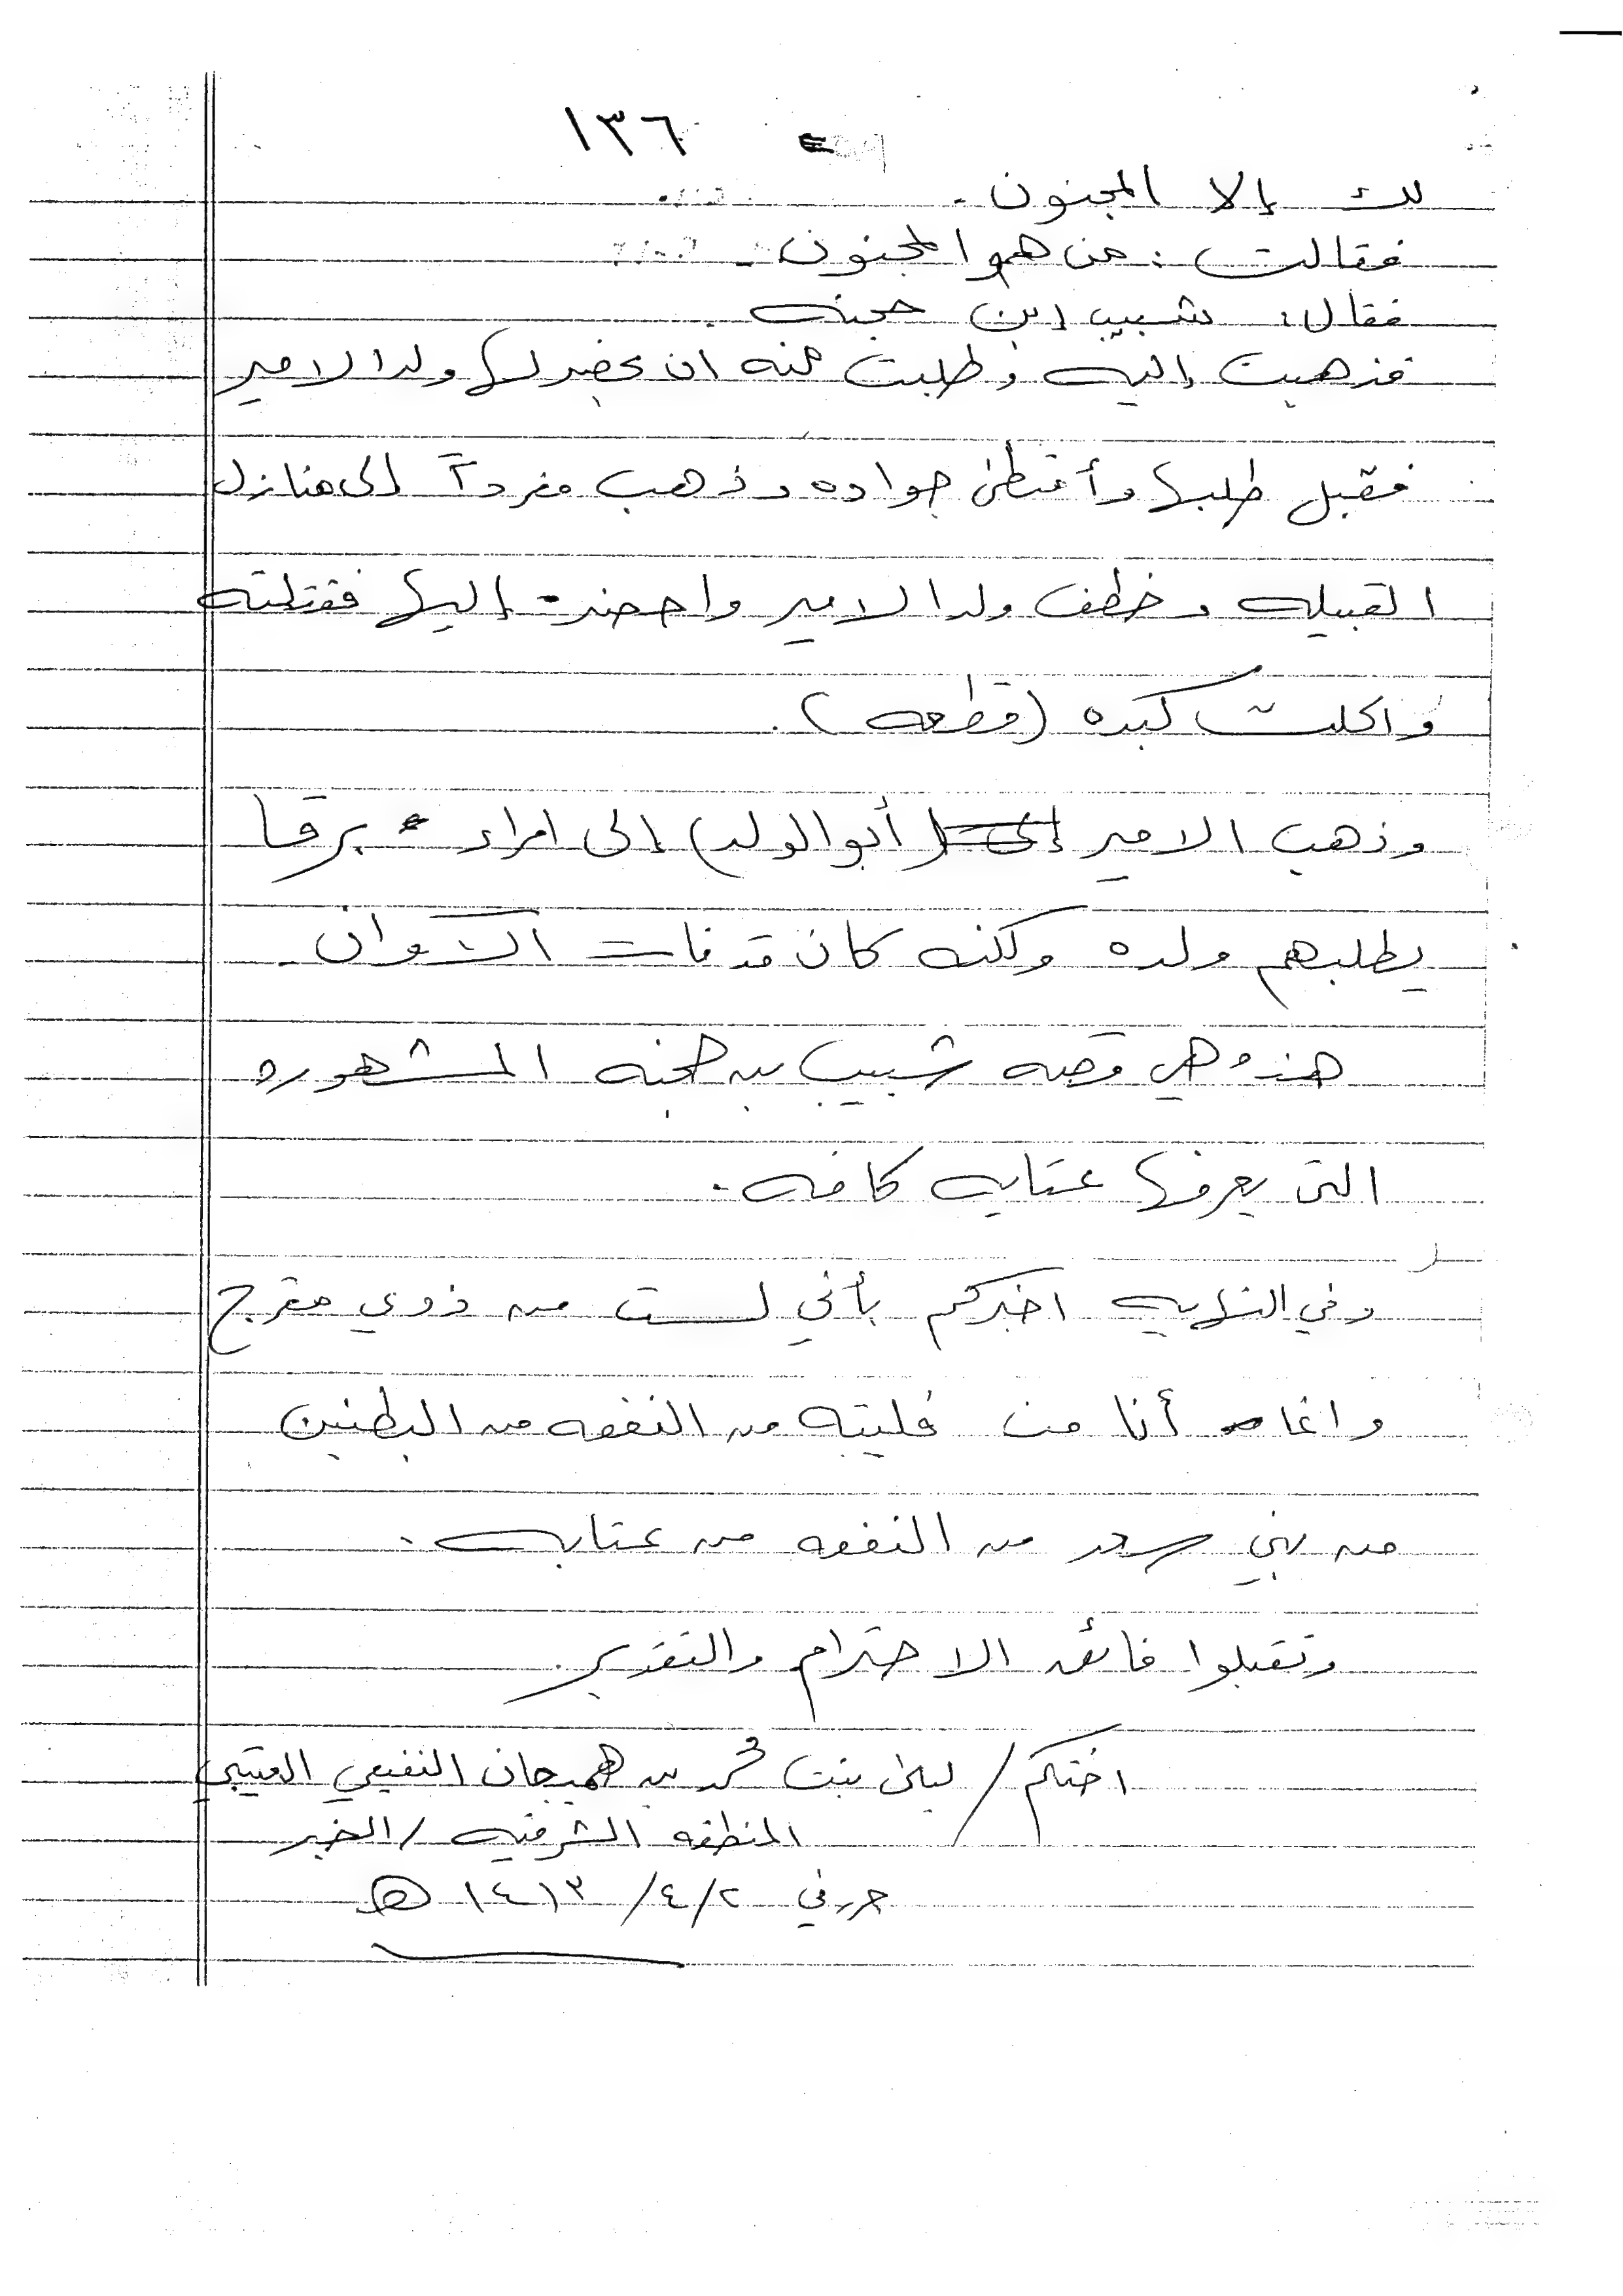 ١٣٦
لك إلا المجنون .
فقالت : من هو المجنون .
فقال : شبيب ابن حجنه .
فذهبت إليه وطلبت منه ان يحضر لها ولد الامير
فقبل طلبها وأمتطى جواده وذهب مفرداً إلى منازل
القبيله وخطف ولد الامير واحضره إليها فقتلته
واكلت كبده (قطعه) .
وذهب الامير (أبو الولد) إلى امراء برقا
يطلبهم ولده ولكنه كان قد فات الآوان .
هذه هي قصه شبيب بن حجنه المشهوره
التى يعرفها عتابه كافه .
وفي النهايه اخبركم بأني لست من ذوي مفرج
وانما أنا من فليته من النفعه من البطنين
من بني سعد من النفعه من عتابه .
وتقبلوا فائق الاحترام والتقدير .
اختكم / ليلى بنت محمد بن هميجان النفيعي العتيبي
المنطقه الشرقيه / الخبر
حرر في ٢/٤/١٤١٣ هـ